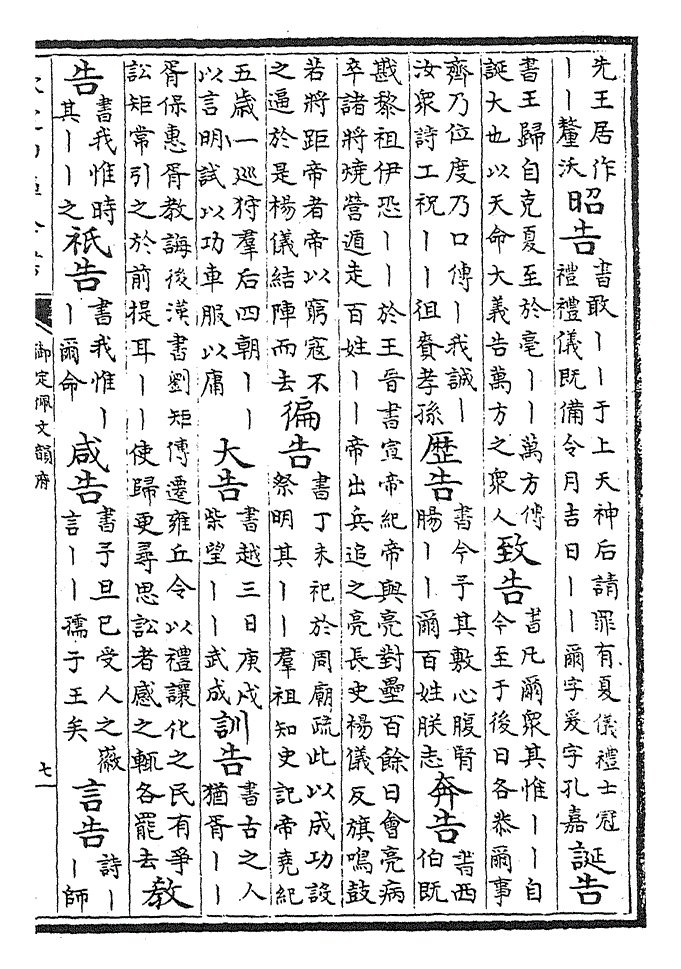 先王居作
丨丨釐沃
昭告
書敢丨丨于上天神后請罪有夏儀禮士冠
禮禮儀既備令月吉日丨丨爾字爰字孔嘉
誕告
書王歸自克夏至於亳丨丨萬方傳
誕大也以天命大義告萬方之衆人
致告
書凡爾衆其惟丨丨自
今至于後日各恭爾事
齊乃位度乃口傳丨我誠丨
汝衆詩工祝丨丨徂賚孝孫
歷告
書今予其敷心腹腎
腸丨丨爾百姓朕志
奔告
書西
伯既
戡黎祖伊恐丨丨於王晉書宣帝紀帝與亮對壘百餘日會亮病
卒諸將燒營遁走百姓丨丨帝出兵追之亮長史楊儀反旗鳴鼓
若將距帝者帝以窮寇不
之逼於是楊儀結陣而去
徧告
書丁未祀於周廟疏此以成功設
祭明其丨丨羣祖知史記帝堯紀
五歲一巡狩羣后四朝丨丨
以言明試以功車服以庸
大告
書越三日庚戌
柴望丨丨武成
訓告
書古之人
猶胥丨丨
胥保惠胥教誨後漢書劉矩傳遷雍丘令以禮讓化之民有爭
訟矩常引之於前提耳丨丨使歸更尋思訟者感之輒各罷去
教
告
書我惟時
其丨丨之
祗告
書我惟丨
丨爾命
咸告
書予旦已受人之徽
言丨丨孺子王矣
言告
詩丨
丨師
御定佩文韻府
七